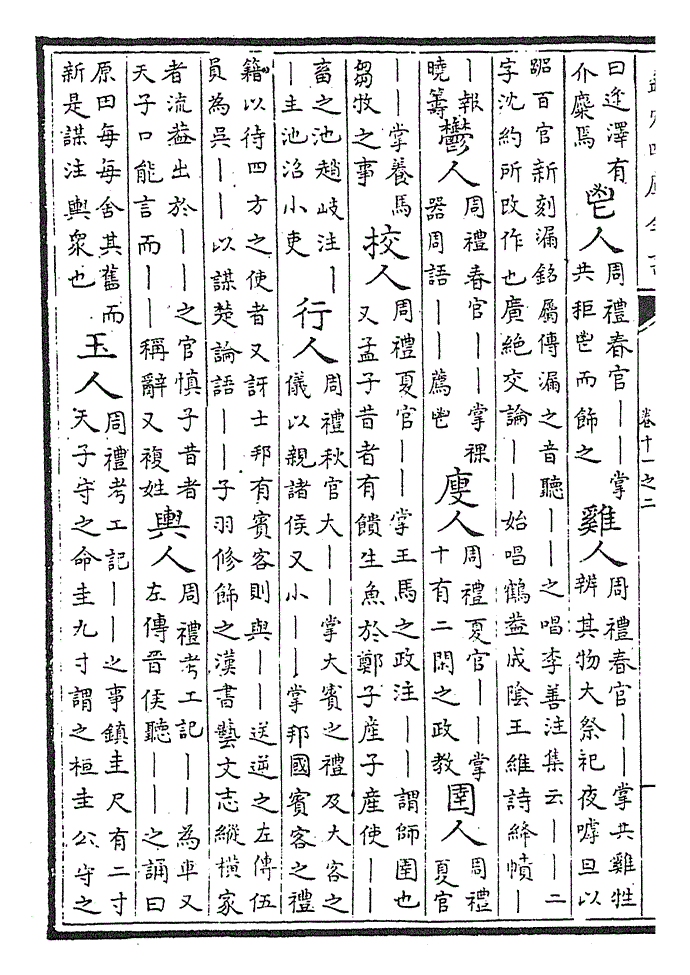 曰迯澤有
介麋焉
鬯人
周禮春官——掌
共秬鬯而飾之
雞人
周禮春官——掌共雞牲
辨其物大祭祀夜嘑旦以
嘂百官新刻漏銘屬傳漏之音聽——之唱李善注集云——二
字沈約所改作也廣絶交論——始唱鶴葢成陰王維詩絳幘—
—報
曉籌
鬱人
周禮春官——掌祼
器周語——薦鬯
廋人
周禮夏官——掌
十有二閑之政教
圉人
周禮
夏官
——掌養馬
芻牧之事
校人
周禮夏官——掌王馬之政注——謂師圉也
又孟子昔者有饋生魚於鄭子産子産使——
畜之池趙岐注—
—主池沼小吏
行人
周禮秋官大——掌大賓之禮及大客之
儀以親諸侯又小——掌邦國賓客之禮
籍以待四方之使者又訝士邦有賓客則與——送逆之左傳伍
員為吳——以謀楚論語——子羽修飾之漢書藝文志縱横家
者流葢出於——之官慎子昔者
天子口能言而——稱辭又複姓
輿人
周禮考工記——為車又
左傳晉侯聽——之誦曰
原田每每舍其舊而
新是謀注輿衆也
玉人
周禮考工記——之事鎮圭尺有二寸
天子守之命圭九寸謂之桓圭公守之
卷十一之二